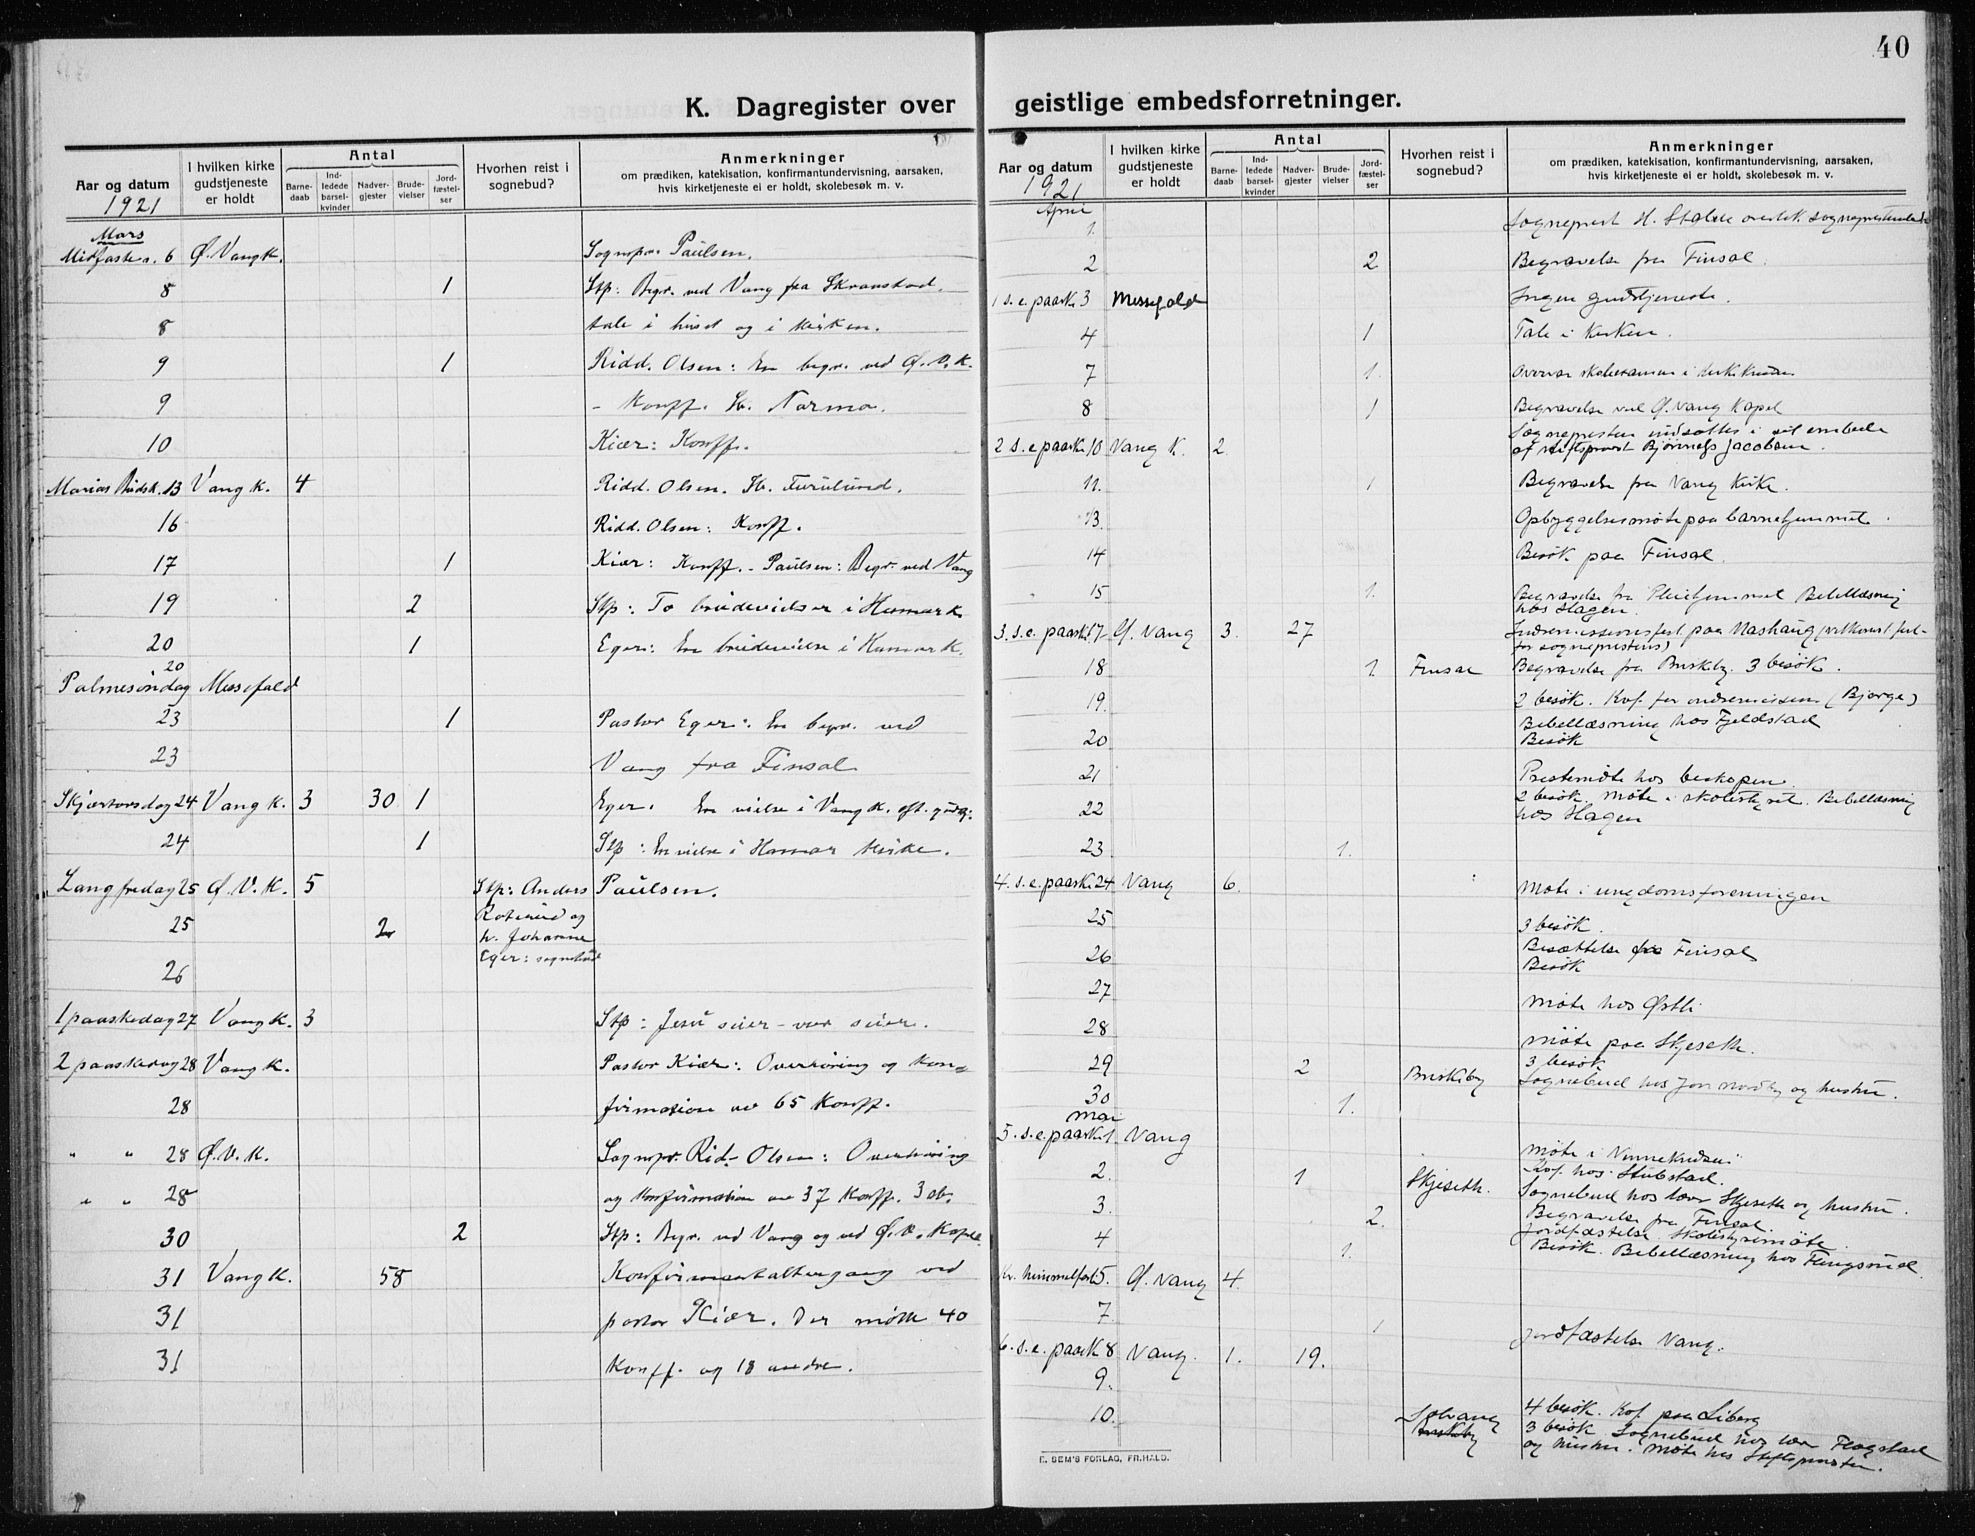 40
K. Dagregister over geistlige embedsforretninger.
Aar og datum
1921
I hvilken kirke gudstjeneste er holdt
Antal
Barne-daab
Ind-ledede barsel-kvinder
Nadver-gjester
Brude-vielser
Jord-fæstel-ser
Hvorhen reist i sognebud?
Anmerkninger
om prædiken, katekisation, konfirmantundervisning, aarsaken,
hvis kirketjeneste ei er holdt, skolebesøk m. v.
Mars
Midfastes. 6 Ø. Vang k. Sognepr. Paulsen.
8 1 Stp: Begr. ved Vang fra Skranstad.
8 tale i huset og i kirken.
9 1 Ridd. Olsen: En begr. ved Ø. V. K.
9 - Konff. Sk. Norma.
10 Kiær: Konff.
Marias Budsk. 13 Vang k. 4 Ridd. Olsen. Sk. Furulund.
16 Ridd. Olsen: Konff.
17 1 Kiær: Konff. - Paulsen: Begr. ved Vang
19 2 Stp: To brudevielser i Hamar k.
20 1 Eger: En brudevielse i Hamar k.
20
Palmesöndag Messefald
23 1 Pastor Eger: En begr. ved
23 Vang fra Finsal
Skjærtorsdag 24 Vang k. 3 30 1 Eger. En vielse i Vang k. eft. gudstj.
24 1 Stp: En vielse i Hamar kirke.
Langfredag 25 Ø. V. K. 5 Stp: Anders Paulsen.
25 2 og
h. Johanne
26 Eger: sognebud
1 paaskedag 27 Vang k. 3 Stp: Jesu seier - vor seier.
2 paaskedag 28 Vang k. Pastor Kiær: Overhöring og kon=
28 firmation av 65 Konff.
" " 28 Ø. V. K. Sognepr. Rid. Olsen: Overhöring
" " 28 og konfirmation av 37 Konff. 3
30 2 Stp: Begr. ved Vang og ved Ø. V. Kapel.
31 Vang k. 58 Konfirmantaltergang ved
31 pastor Kiær. Der møtte 40
31 Konff. og 18 andre.
Aar og datum
1921
I hvilken kirke gudstjeneste er holdt
Antal
Barne-daab
Ind-ledede barsel-kvinder
Nadver-gjester
Brude-vielser
Jord-fæstel-ser
Hvorhen reist i sognebud?
Anmerkninger
om prædiken, katekisation, konfirmantundervisning, aarsaken,
hvis kirketjeneste ei er holdt, skolebesøk m. v.
April
1. Sogneprest H.
2 2 Begravelse fra Finsal.
1 s. e. paaske 3 Messefald Ingen gudstjeneste.
4 1 Tale i kirken.
7 1. Overvar skoleeksamen i
8 1 Begravelse ved Ø. Vang Kapel
2 s. e. paaske 10 Vang K. 2. Sognepresten indsattes i sit embede
af stiftsprovst Jacobsen.
11. 1 Begravelse fra Vang kirke.
13. Opbyggelsesmøte paa barnehjemmet.
14 Besök paa Finsal.
15 1. Begravelse fra Pleiehjemmet Bibellæsning
hos Hagen.
3. s. e. paaske 17 Ø. Vang 3. 27 Indremissionsfest paa Nashaug (velkomstfest
for sognepresten)
18 1. Finsal Begravelse fra Briskeby. 3 besök.
19. 2 besök. Kof. for indremission (Bjørge)
Bibellæsning hos Fjeldstad
20 Besök
21 Prestemöte hos biskopen.
22 2 besök. Møte i skolestyret. Bibellæsning
hos Hagen
23 1.
4. s. e. paaske 24 Vang 6. Møte i ungdomsforeningen
25 3 besök.
26 Finsal
Besök
27 Møte hos Østli
28 Møte paa Skjeseth.
29 2 Briskeby 3 besök
Sognebud hos Jon Nordby og hustru.
30 1.
Mai
5. s. e. paaske 1. Vang Møte i
2. 1 Skjeseth. Kof. hos Stubstad.
Sognebud hos lærer Skjeseth og hustru.
3. 2. Begravelse fra Finsal.
Jordfæstelse. Skolestyremöte.
4 1. Besök. Bibellæsning hos
Kr. himmelfart 5. Ø. Vang 4.
7. 1 Jordfæstelse Vang.
6. s. e. paaske 8 Vang. 1. 19.
9.
10. Solvang 4 besök. Kof. paa Liberg
Briskeby 3 besök Sognebud hos lærer Flagstad
og hustru. Møte hos Stiftsprovsten.
E. SEM'S FORLAG, FR.HALD.